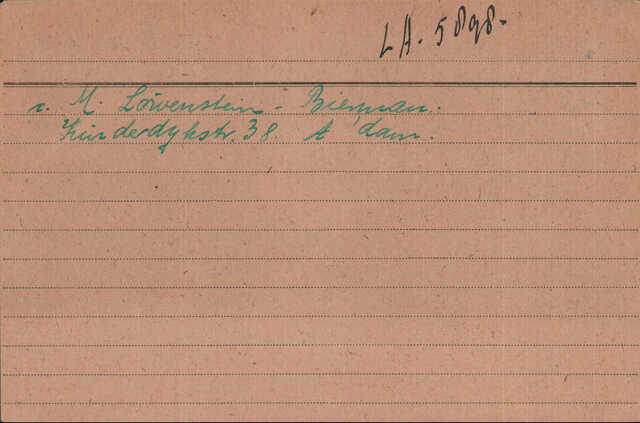 LA. 5898.
v. M. Löwenstein - Bierman.
Kinderdykstr. 38. A'dam.